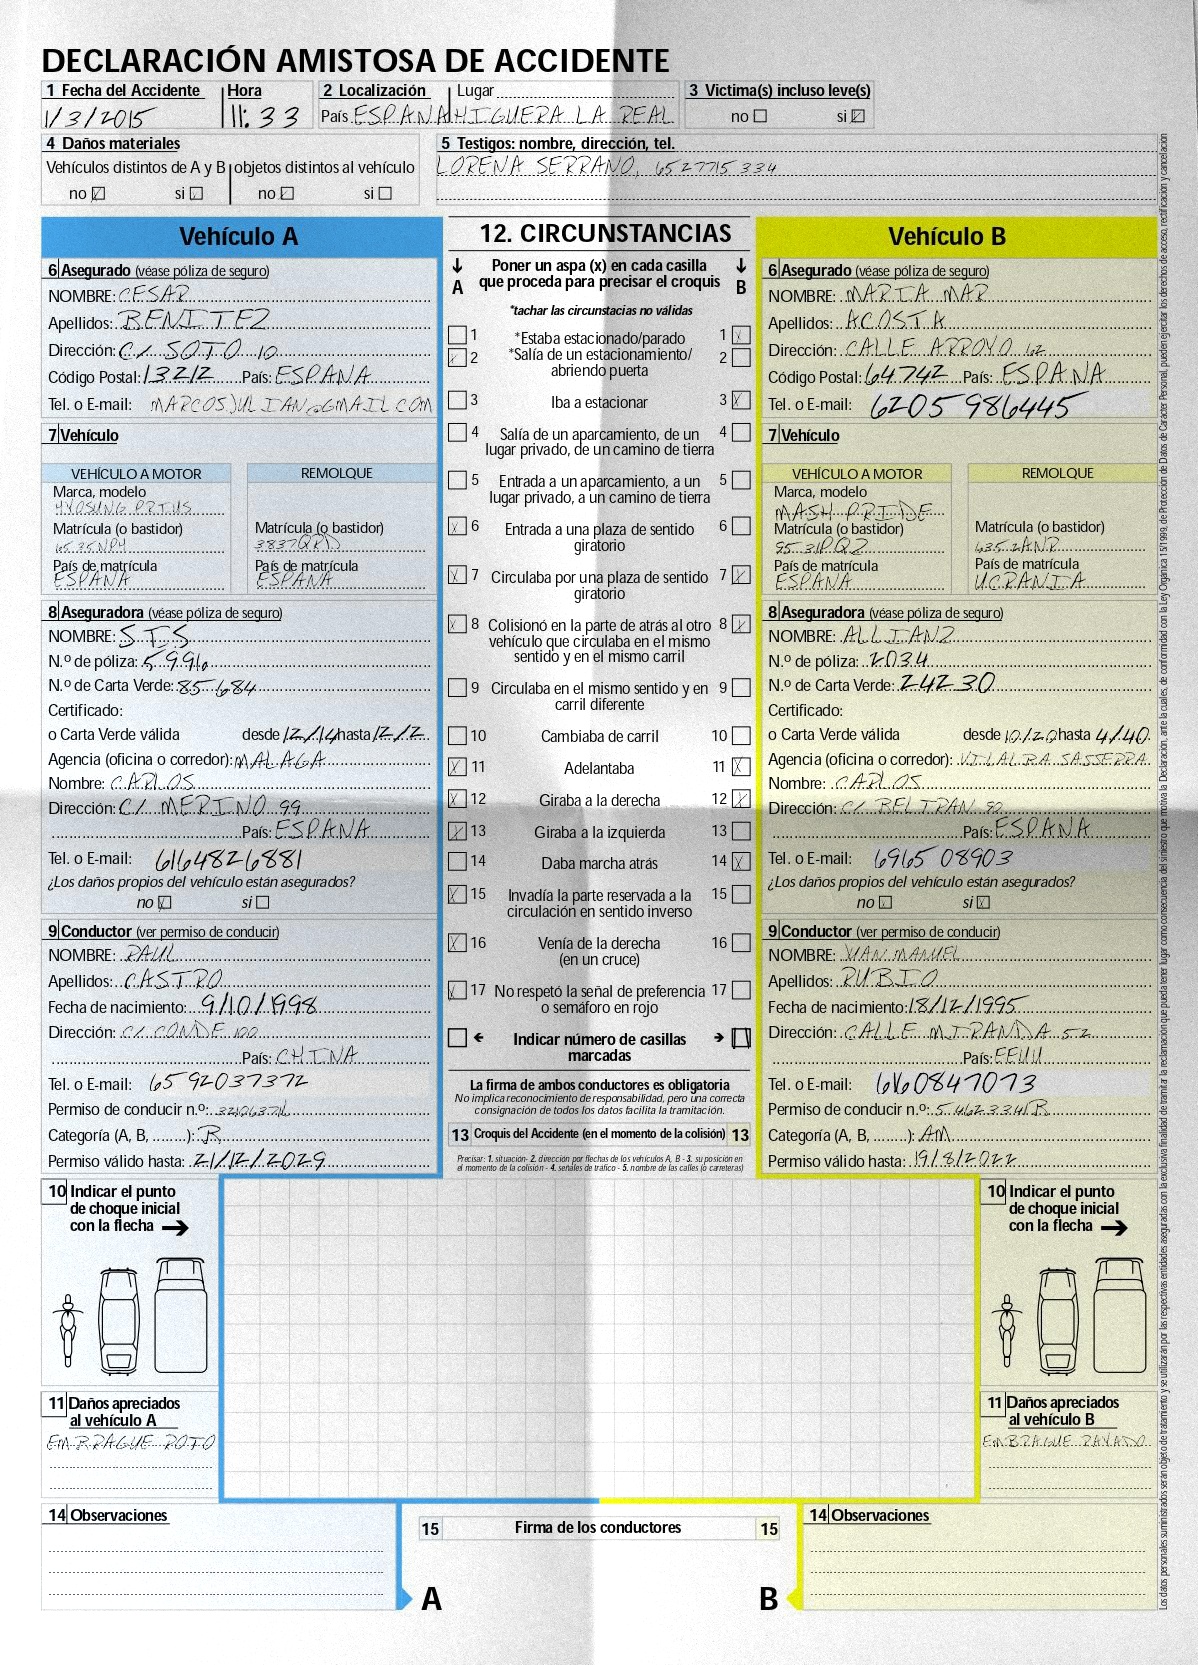 DECLARACIÓN AMISTOSA DE ACCIDENTE
1 Fecha del Accidente Hora 2 Localización Lugar 3 Victima(s) incluso leve(s)
1/3/2015 11:33 País ESPAÑA HIGUERA LA REAL no si
4 Daños materiales 5 Testigos: nombre, dirección, tel.
Vehículos distintos de A y B objetos distintos al vehículo LORENA SERRANO, 6527715334
no si no si
Vehículo A
6 Asegurado (véase póliza de seguro)
NOMBRE: CESAR
Apellidos: BENITEZ
Dirección: C/ SOTO 10
Código Postal: 13212 País: ESPAÑA
Tel. o E-mail: MARCOSJULIAN@GMAIL.COM
7 Vehículo
VEHÍCULO A MOTOR REMOLQUE
Marca, modelo
HYOSUNG PRIUS
Matrícula (o bastidor) Matrícula (o bastidor)
6535NPH 3837QRD
País de matrícula País de matrícula
ESPAÑA ESPAÑA
8 Aseguradora (véase póliza de seguro)
NOMBRE: STS
N.º de póliza: 5996
N.º de Carta Verde: 85684
Certificado:
o Carta Verde válida desde 12/14 hasta 12/2
Agencia (oficina o corredor): MALAGA
Nombre: CARLOS
Dirección: C/ MERINO 99
País: ESPAÑA
Tel. o E-mail: 6164826881
¿Los daños propios del vehículo están asegurados?
no si
9 Conductor (ver permiso de conducir)
NOMBRE: RAUL
Apellidos: CASTRO
Fecha de nacimiento: 9/10/1998
Dirección: C/ CONDE 100
País: CHINA
Tel. o E-mail: 6592037372
Permiso de conducir n.º:
Categoría (A, B, ........): B
Permiso válido hasta: 21/12/2029
12. CIRCUNSTANCIAS
A Poner un aspa (x) en cada casilla que proceda para precisar el croquis B
*tachar las circunstacias no válidas
1 *Estaba estacionado/parado 1
2 *Salía de un estacionamiento/ 2
abriendo puerta
3 Iba a estacionar 3
4 Salía de un aparcamiento, de un 4
lugar privado, de un camino de tierra
5 Entrada a un aparcamiento, a un 5
lugar privado, a un camino de tierra
6 Entrada a una plaza de sentido 6
giratorio
7 Circulaba por una plaza de sentido 7
giratorio
8 Colisionó en la parte de atrás al otro 8
vehículo que circulaba en el mismo
sentido y en el mismo carril
9 Circulaba en el mismo sentido y en 9
carril diferente
10 Cambiaba de carril 10
11 Adelantaba 11
12 Giraba a la derecha 12
13 Giraba a la izquierda 13
14 Daba marcha atrás 14
15 Invadía la parte reservada a la 15
circulación en sentido inverso
16 Venía de la derecha 16
(en un cruce)
17 No respetó la señal de preferencia 17
o semáforo en rojo
Indicar número de casillas
marcadas
La firma de ambos conductores es obligatoria
No implica reconocimiento de responsabilidad, pero una correcta
consignación de todos los datos facilita la tramitación.
13 Croquis del Accidente (en el momento de la colisión) 13
Precisar: 1. situación- 2. dirección por flechas de los vehículos A, B - 3. su posición en
el momento de la colisión - 4. señales de tráfico - 5. nombre de las calles (o carreteras)
Vehículo B
6 Asegurado (véase póliza de seguro)
NOMBRE: MARIA MAR
Apellidos: ACOSTA
Dirección: CALLE ARROYO 62
Código Postal: 64742 País: ESPAÑA
Tel. o E-mail: 6205986445
7 Vehículo
VEHÍCULO A MOTOR REMOLQUE
Marca, modelo
MASH PRIDE
Matrícula (o bastidor) Matrícula (o bastidor)
9531PQZ 6352ANR
País de matrícula País de matrícula
ESPAÑA UCRANIA
8 Aseguradora (véase póliza de seguro)
NOMBRE: ALLIANZ
N.º de póliza: 2034
N.º de Carta Verde: 24230
Certificado:
o Carta Verde válida desde 10/20 hasta 4/40
Agencia (oficina o corredor): VILALBA SASSERRA
Nombre: CARLOS
Dirección: C/ BELTRAN 82
País: ESPAÑA
Tel. o E-mail: 6965 08903
¿Los daños propios del vehículo están asegurados?
no si
9 Conductor (ver permiso de conducir)
NOMBRE: JUAN MANUEL
Apellidos: RUBIO
Fecha de nacimiento: 18/12/1995
Dirección: CALLE MIRANDA 52
País: EEUU
Tel. o E-mail: 6160847073
Permiso de conducir n.º: 5462334R
Categoría (A, B, ........): AM
Permiso válido hasta: 19/8/2022
10 Indicar el punto
de choque inicial
con la flecha
11 Daños apreciados
al vehículo A
EMBRAGUE ROTO
10 Indicar el punto
de choque inicial
con la flecha
11 Daños apreciados
al vehículo B
EMBRAGUE RAYADO
14 Observaciones
15 Firma de los conductores 15
A B
14 Observaciones
Los datos personales suministrados serán objeto de tratamiento y se utilizarán por las respectivas entidades aseguradas con la exclusiva finalidad de tramitar la reclamación que pueda tener lugar como consecuencia del siniestro que motiva la Declaración, ante la cuales, de conformidad con la Ley Organica 15/1999, de Protección de Datos de Carácter Personal, pueden ejercitar los derechos de acceso, rectificación y cancelación